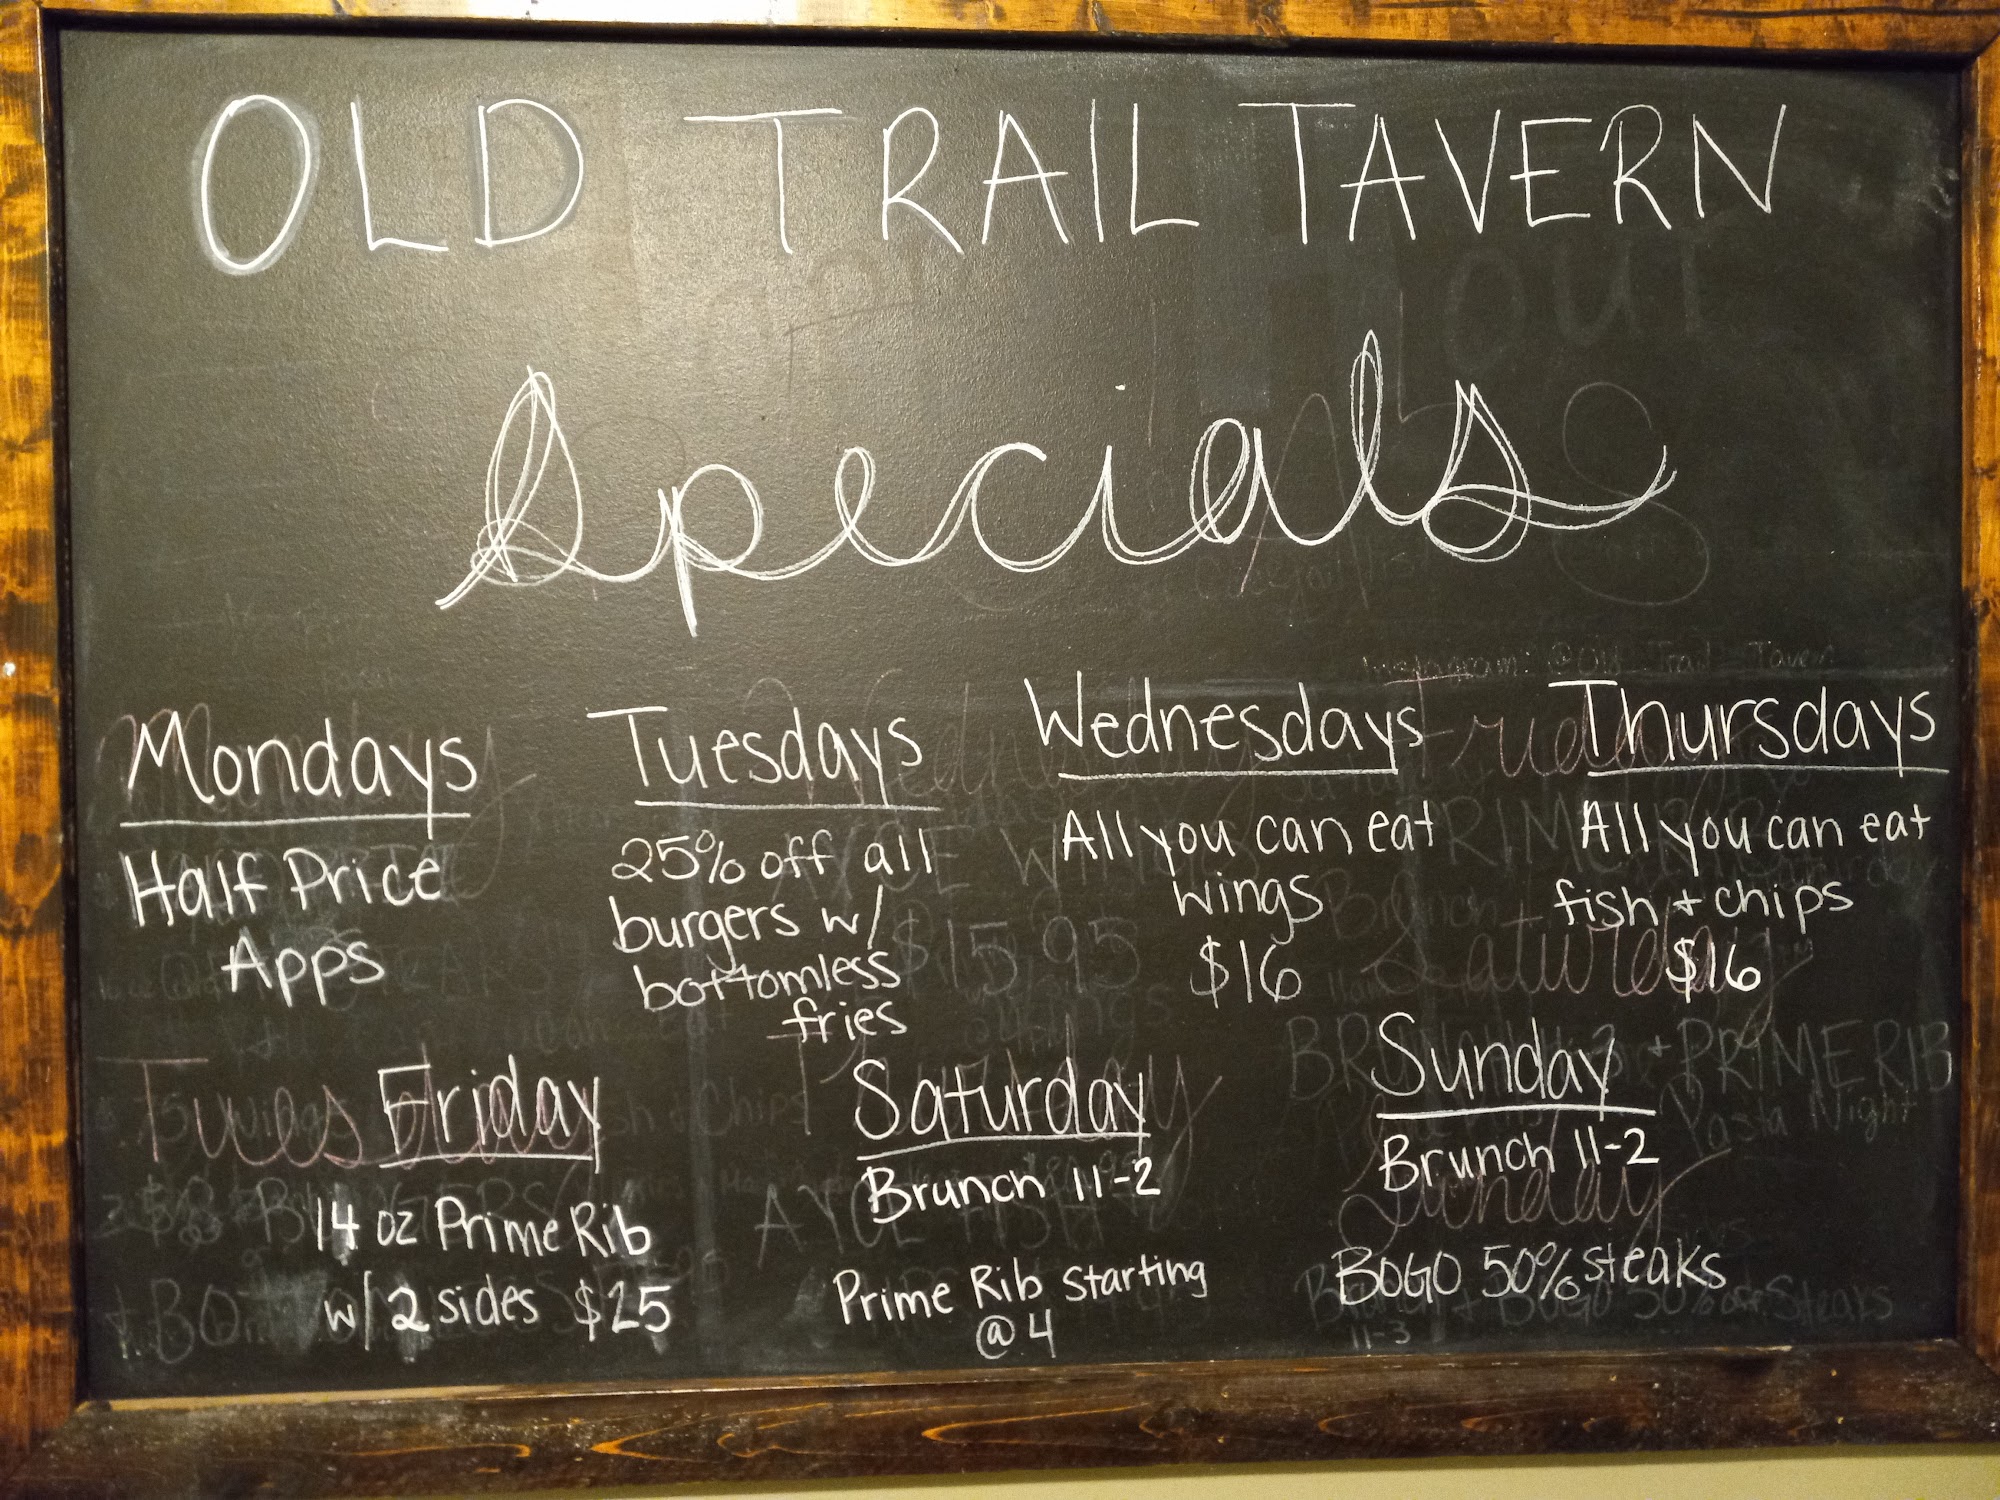 OLD TRAIL TAVERN
Specials
Instagram: @Old Trail Tavern
Mondays
Half Price
Apps
Tuesdays
25% off all
burgers w/
bottomless
fries
Wednesdays
All you can eat
wings
$16
Thursdays
All you can eat
fish + chips
$16
Friday
14 oz Prime Rib
w/ 2 sides $25
Saturday
Brunch 11-2
Prime Rib starting
@ 4
Sunday
Brunch 11-2
BOGO 50% steaks